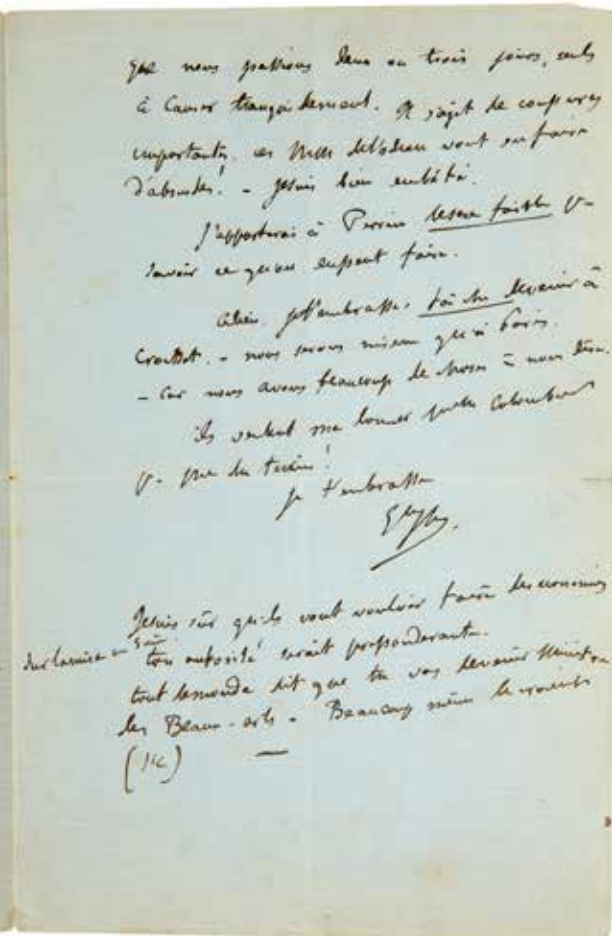 que nous passions deux ou trois jours, seuls
à causer tranquillement. Il s'agit de coupures
importantes. ces MMrs de l'Odéon vont en faire
d'absurdes! – je suis bien embêté.
J'apporterai à Perrin le sexe faible p.
savoir ce qu'on en peut faire.
adieu. je t'embrasse. tâche de venir à
Croisset. – nous serons mieux qu'à Paris.
– car nous avons beaucoup de choses à nous dire.
ils veulent me donner
p.
je t'embrasse
Je suis sûr qu'ils vont vouloir faire des économies
sur la mise en scène
ton autorité serait prépondérante.
tout le monde dit que tu vas devenir ministre
des Beaux-arts – Beaucoup même le croient
(sic) —